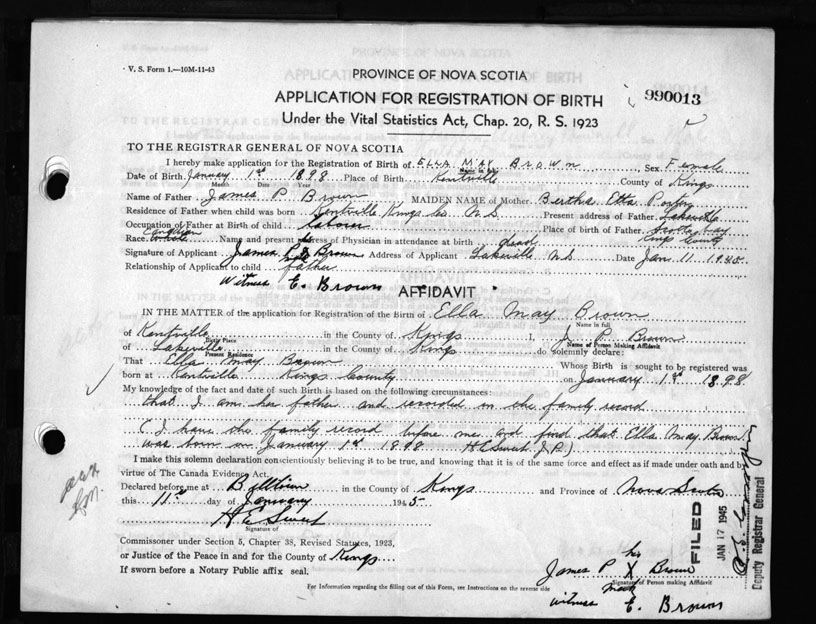 V. S. Form 1.—10M-11-43
PROVINCE OF NOVA SCOTIA
APPLICATION FOR REGISTRATION OF BIRTH
990013
Under the Vital Statistics Act, Chap. 20, R. S. 1923
TO THE REGISTRAR GENERAL OF NOVA SCOTIA
I hereby make application for the Registration of Birth of ELLA MAY Brown Sex Female
Date of Birth January 1st 1898 Place of Birth Kentville County of Kings
Month Day Year
Name of Father James P Brown MAIDEN NAME of Mother Bertha Etta
Residence of Father when child was born Kentville Kings Co N.S. Present address of Father Lakeville
Occupation of Father at Birth of child labour Place of birth of Father
Race White Name and present address of Physician in attendance at birth dead County
Signature of Applicant James P X Brown Address of Applicant Lakeville N.S. Date Jan. 11 1945
Relationship of Applicant to child father
Witness E. Brown
AFFIDAVIT
IN THE MATTER of the application for Registration of the Birth of Ella May Brown
Name in full
of Kentville in the County of Kings I, J. P. Brown
Birth Place Name of Person Making Affidavit
of Lakeville in the County of Kings do solemnly declare:
Present Residence
That Ella May Brown Whose Birth is sought to be registered was
born at Kentville Kings County on January 1st 1898
My knowledge of the fact and date of such Birth is based on the following circumstances:
that I am her father and recorded in the family record
(I have the family record before me and find that Ella May Brown
was born on January 1st 1898 H E Swet J.P.)
I make this solemn declaration conscientiously believing it to be true, and knowing that it is of the same force and effect as if made under oath and by
virtue of The Canada Evidence Act.
Declared before me at in the County of Kings and Province of Nova Scotia
this 11th day of January 1945
H E Swet
Signature of
Commissioner under Section 5, Chapter 38, Revised Statutes, 1923,
or Justice of the Peace in and for the County of Kings
If sworn before a Notary Public affix seal.
James P his X mark Brown
Signature of Person making Affidavit
For Information regarding the filling out of this Form, see Instructions on the reverse side
witness E. Brown
FILED
JAN 17 1945
Deputy Registrar General